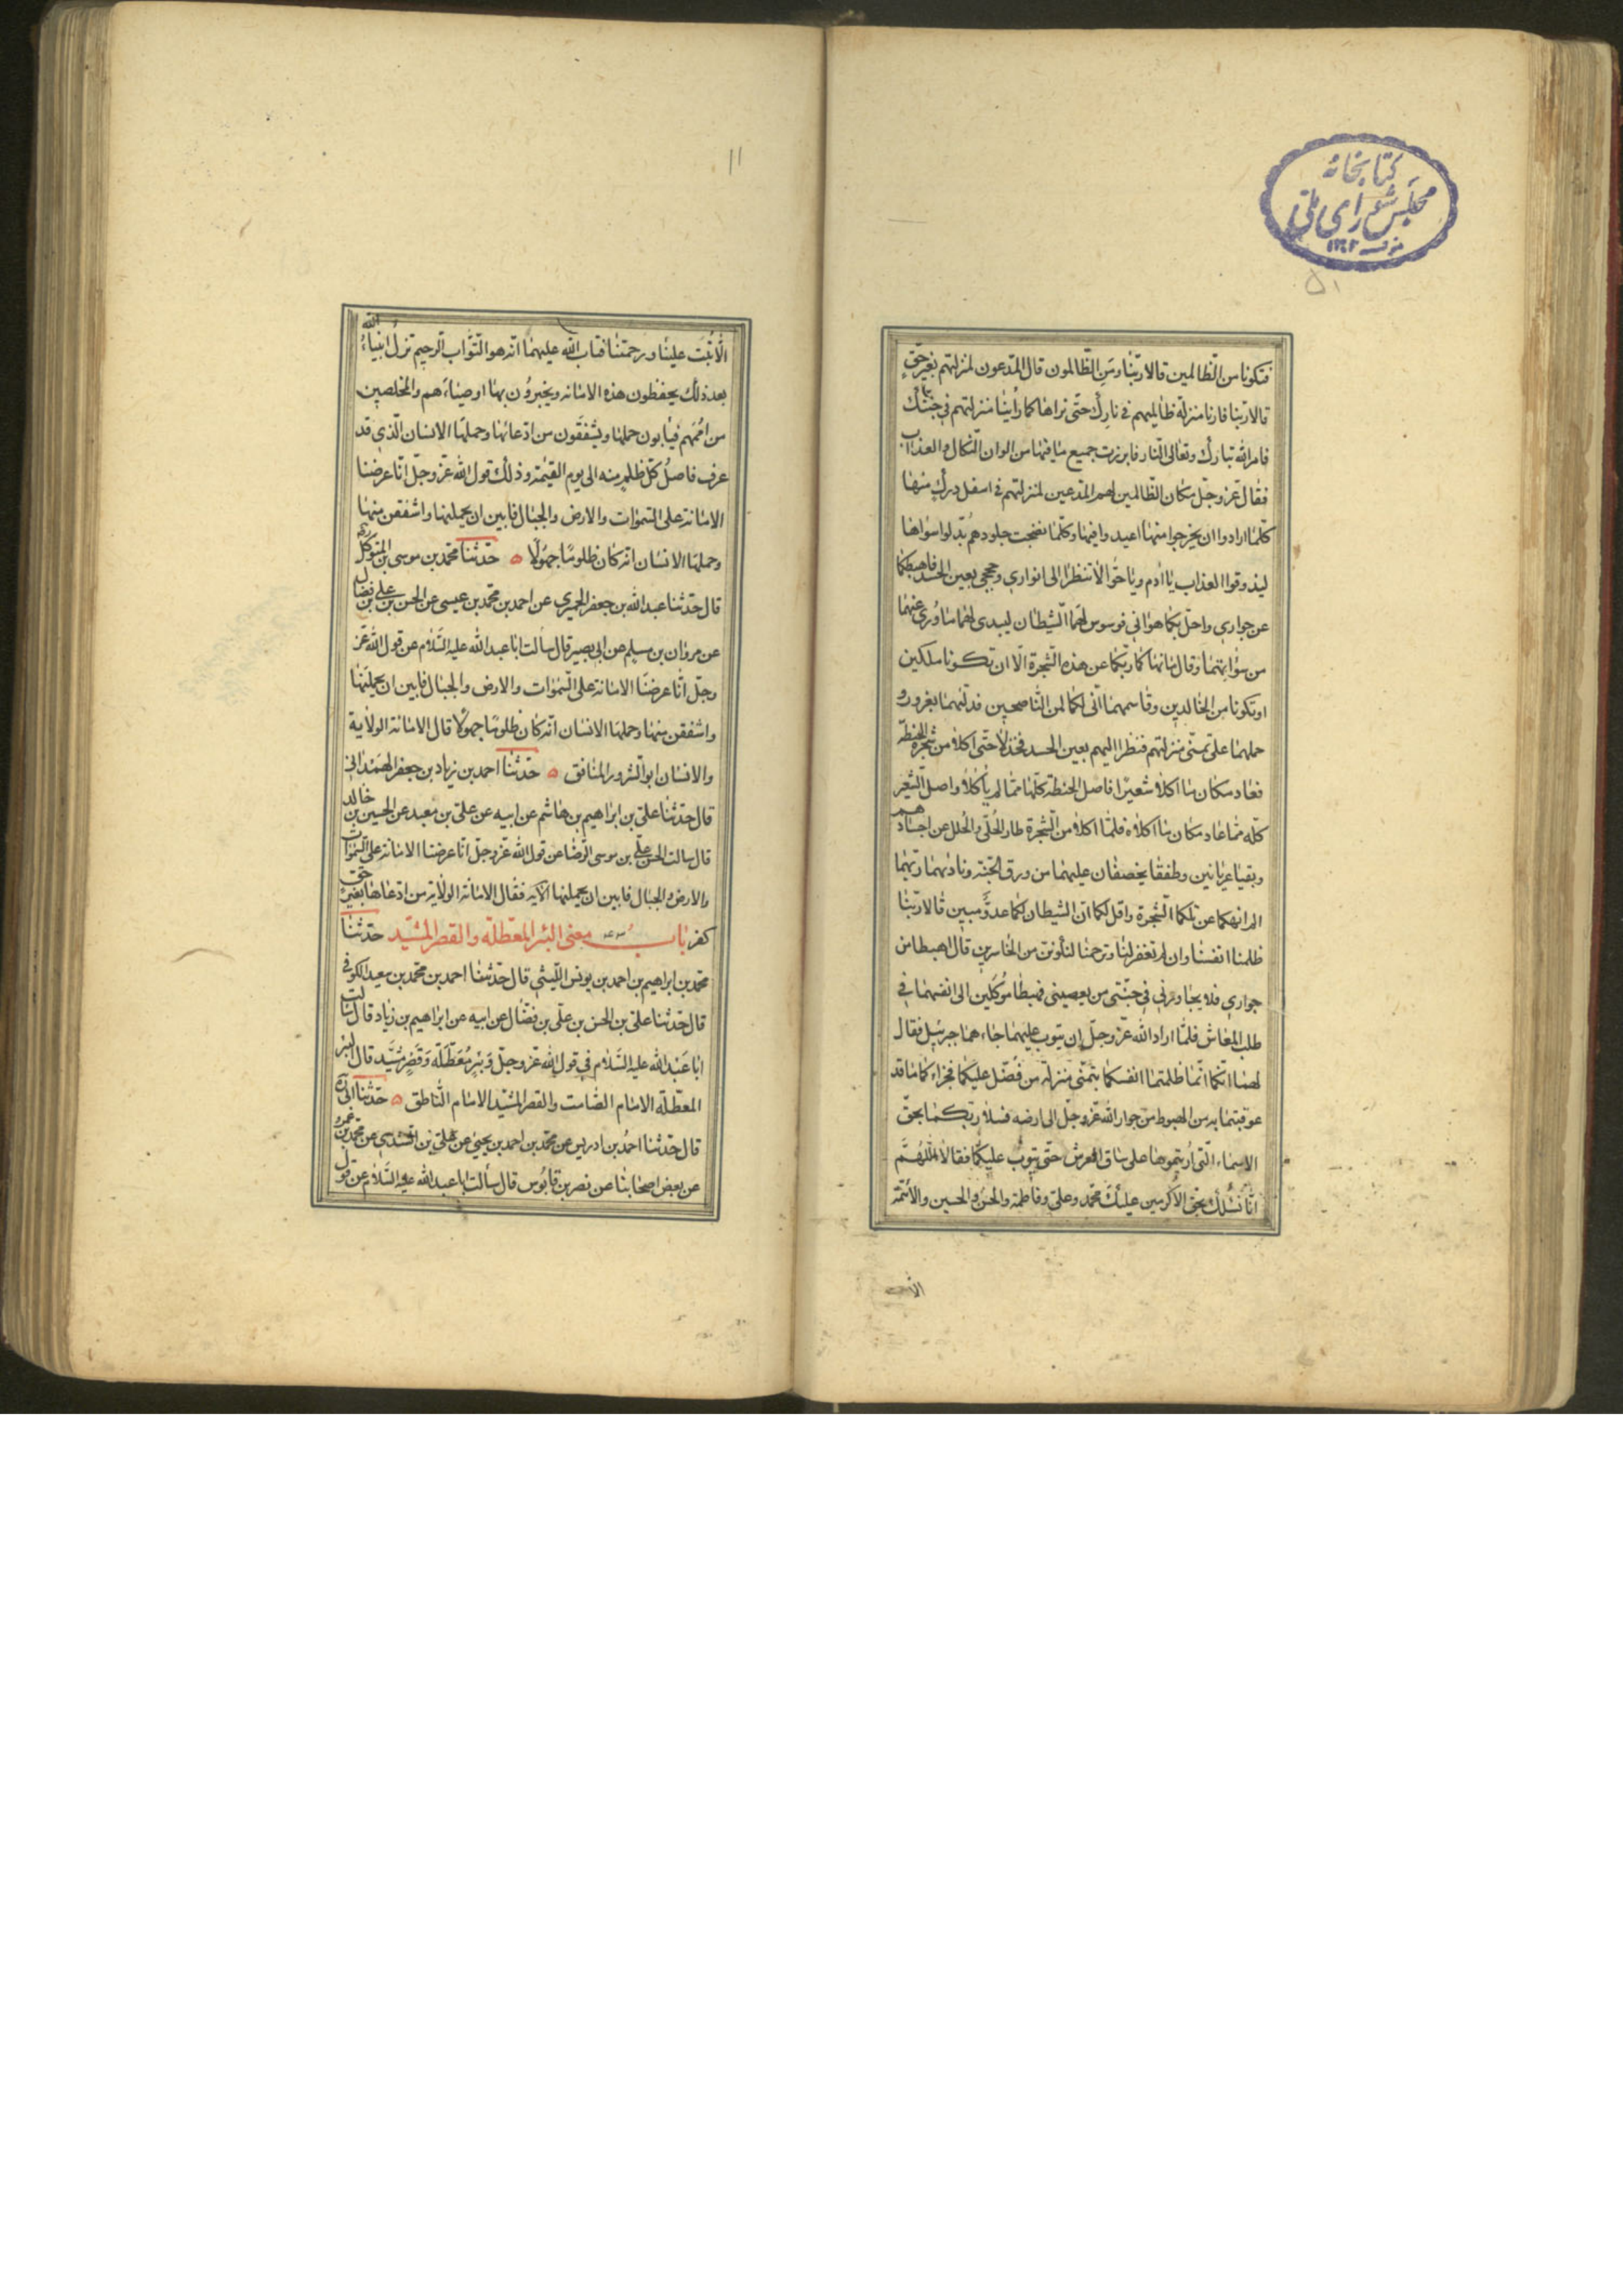 كتابخانه
مجلس شورای ملی
۱۳۰۲
فتكونا من الظالمين قالا ربنا ومن الظالمون قال المدعون لمنزلتهم بغير حق
قالا ربنا فارنا منزلة ظالميهم في نارك حتى نراها كما رأينا منزلتهم في جنتك
فامر الله تبارك وتعالى النار فابرزت جميع ما فيها من الوان النكال والعذاب
فقال عز وجل مكان الظالمين لهم المدعين لمنزلتهم في اسفل درك منها
كلما ارادوا ان يخرجوا منها اعيدوا فيها وكلما نضجت جلودهم بدلوا سواها
ليذوقوا العذاب يا ادم ويا حوا لا تنظرا الى انواري وحججي بعين الحسد فاهبطكما
عن جواري واحل بكما هواني فوسوس لهما الشيطان ليبدى لهما ما وري عنهما
من سوأتهما وقال ما نهاكما ربكما عن هذه الشجرة الا ان تكونا ملكين
او تكونا من الخالدين وقاسمهما انى لكما لمن الناصحين فدلهما بغرور و
حملهما على تمنى منزلتهم فنظرا اليهم بعين الحسد فخذلا حتى اكلا من شجرة الحنطة
فعاد مكان ما اكلا شعيرا فاصل الحنطة كلها مما لم يأكلا واصل الشعير
كله مما عاد مكان ما اكلاه فلما اكلا من الشجرة طار الحلى والحلل عن اجسادهم
وبقيا عريانين وطفقا يخصفان عليهما من ورق الجنة وناديهما ربهما
الم انهكما عن تلكما الشجرة واقل لكما ان الشيطان لكما عدو مبين قالا ربنا
ظلمنا انفسنا وان لم تغفر لنا وترحمنا لنكونن من الخاسرين قال اهبطا من
جواري فلا يجاورني في جنتي من يعصيني فهبطا موكلين الى انفسهما في
طلب المعاش فلما اراد الله عز وجل ان يتوب عليهما جاءهما جبرئيل فقال
لهما انكما انما ظلمتما انفسكما بتمنى منزلة من فضل عليكما فجزاءكما ما قد
عوقبتما به من الهبوط من جوار الله عز وجل الى ارضه فسلا ربكما بحق
الاسماء التى رأيتموها على ساق العرش حتى يتوب عليكما فقالا اللهم
انا نسئلك بحق الاكرمين عليك محمد وعلى وفاطمة والحسن والحسين والأئمة
۱۱
الا تبت علينا ورحمتنا فتاب الله عليهما انه هو التواب الرحيم فلم تزل انبياء الله
بعد ذلك يحفظون هذه الامانة ويخبرون بها اوصياءهم والمخلصين
من اممهم فيأبون حملها ويشفقون من ادعائها وحملها الانسان الذي قد
عرف فاصل كل ظلم منه الى يوم القيمة وذلك قول الله عز وجل انا عرضنا
الامانة على السموات والارض والجبال فابين ان يحملنها واشفقن منها
وحملها الانسان انه كان ظلوما جهولا ه حدثنا محمد بن موسى بن المتوكل
قال حدثنا عبد الله بن جعفر الحميري عن احمد بن محمد بن عيسى عن الحسن بن على بن فضال
عن مروان بن مسلم عن ابى بصير قال سألت ابا عبد الله عليه السلام عن قول الله عز
وجل انا عرضنا الامانة على السموات والارض والجبال فابين ان يحملنها
واشفقن منها وحملها الانسان انه كان ظلوما جهولا قال الامانة الولاية
والانسان ابو الشرور المنافق ه حدثنا احمد بن زياد بن جعفر الهمداني
قال حدثنا على بن ابراهيم بن هاشم عن ابيه عن على بن معبد عن الحسين بن خالد
قال سالت ابا الحسن على بن موسى الرضا عن قول الله عز وجل انا عرضنا الامانة على السموات
والارض والجبال فابين ان يحملنها الآية فقال الامانة الولاية من ادعاها بغير حق
كفر باب معنى البئر المعطلة والقصر المشيد حدثنا
محمد بن ابراهيم بن احمد بن يونس الليثي قال حدثنا احمد بن محمد بن سعيد الكوفي
قال حدثنا على بن الحسن بن على بن فضال عن ابيه عن ابراهيم بن زياد قال سالت
ابا عبد الله عليه السلام في قول الله عز وجل وبئر معطلة وقصر مشيد قال البئر
المعطلة الامام الصامت والقصر المشيد الامام الناطق ه حدثنا ابى
قال حدثنا احمد بن ادريس عن محمد بن احمد بن يحيى عن على بن السندي عن محمد بن عمرو
عن بعض اصحابنا عن نصر بن قابوس قال سألت ابا عبد الله عليه السلام عن قول